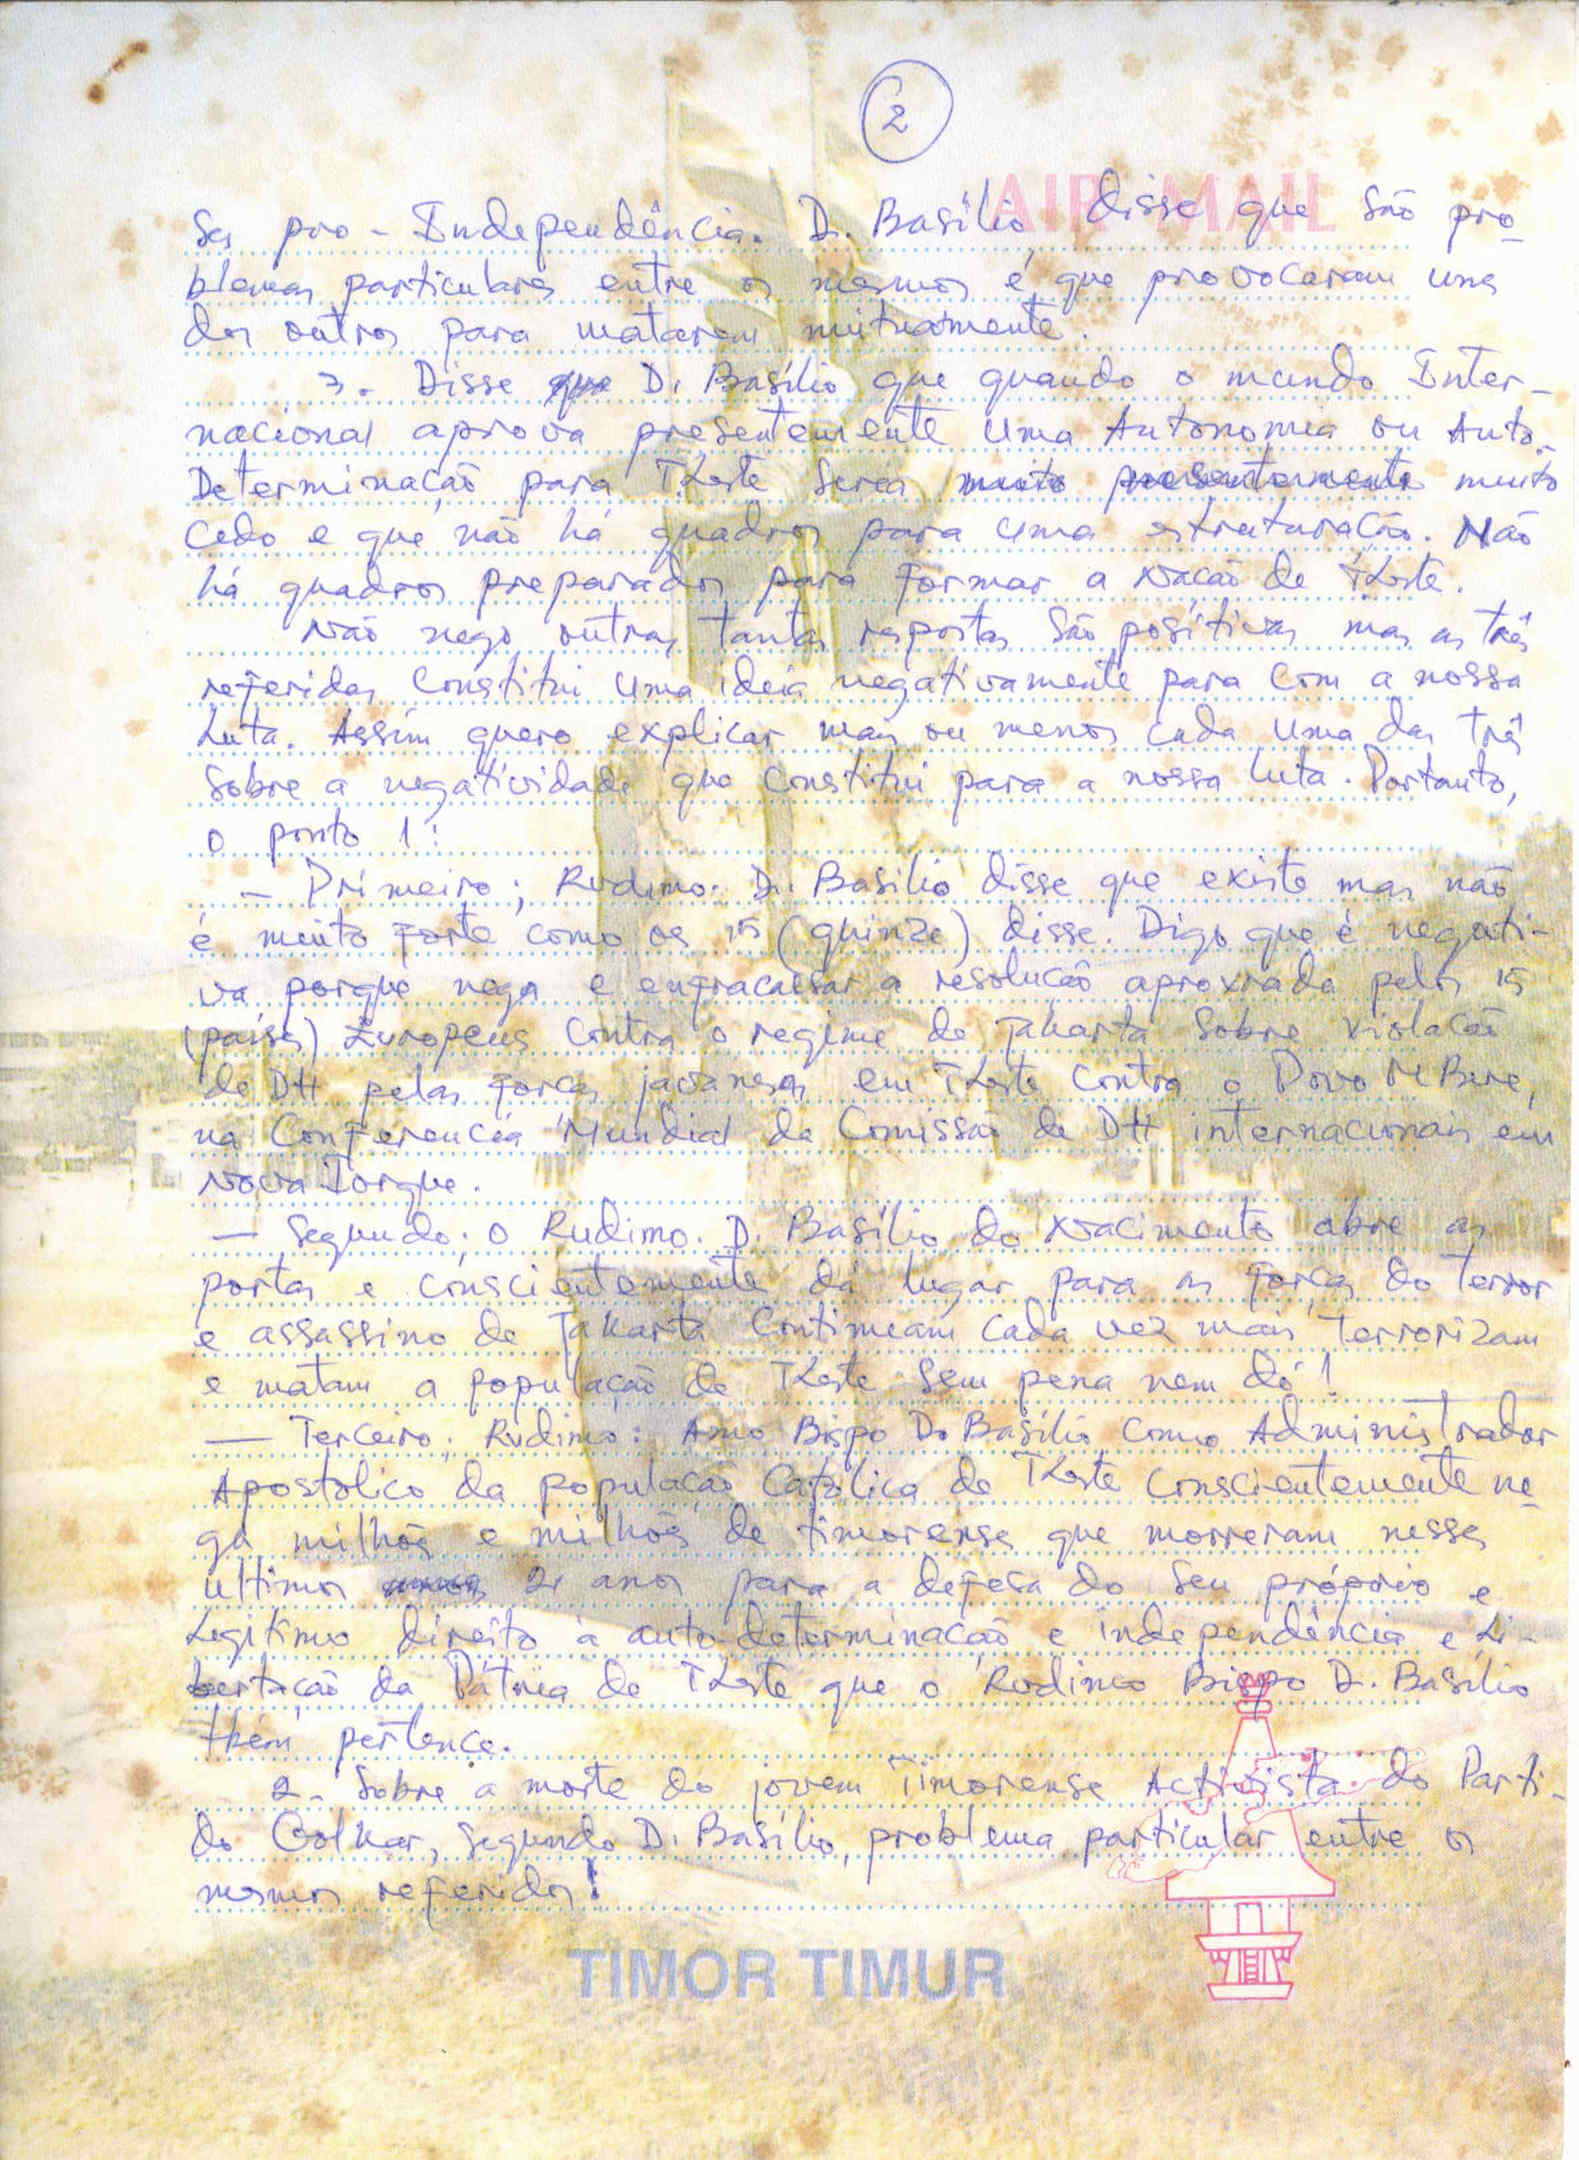 2
AIR MAIL
ses pro-Independência. D. Basílio, disse que são pro-
blemas particulares entre os mesmos é que provocaram uns
dos outros para matarem mutuamente.
3. Disse que D. Basílio que quando o mundo Inter-
nacional aprova presentemente uma Autonomia ou Auto-
Determinação para T.Leste seria muito presentemente muito
cedo e que não há quadros para uma estruturação. Não
há quadros preparados para formar a Nação de T.Leste.
Não nego outras tantas respostas são positivas mas as três
referidas constitui uma ideia negativamente para com a nossa
Luta. Assim quero explicar mais ou menos cada uma das três
sobre a negatividade que constitui para a nossa luta. Portanto,
o ponto 1:
- Primeiro; Rvdmo. D. Basílio disse que existe mas não
é muito forte como os 15 (quinze) disse. Digo que é negati-
va porque nega e enfracassar a resolução aprovada pelos 15
(países) Europeus contra o regime de Jakarta sobre violação
de DH pelas forças javanesas em TLeste contra o Povo MBere,
na Conferencia Mundial da Comissão de DH internacionais em
Nova Iorque.
- Segundo; o Rvdimo. D. Basílio do Nacimento abre as
portas e conscientemente dá lugar para as forças do terror
e assassino de Jakarta continuam cada vez mais terrorizam
e matam a população de TLeste sem pena nem dó!
- Terceiro; Rvdimo: Amo Bispo D. Basílio como Administrador
Apostólico da população Católica de TLeste conscientemente ne-
ga milhões e milhões de timorense que morreram nesses
ultimos anos 21 anos para a defesa do seu próprio e
Legítimo direito à auto-determinação e independência e Li-
bertação da Pátria de TLeste que o Rvdimo Bispo D. Basílio
tbém pertence.
2. Sobre a morte do jovem Timorense Activista do Parti-
do Golkar, segundo D. Basílio, problema particular entre os
mesmos referidos!
TIMOR TIMUR